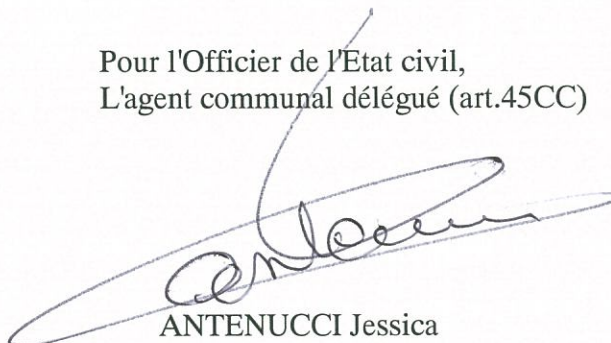 Pour l'Officier de l'Etat civil,
L'agent communal délégué (art.45CC)
ANTENUCCI Jessica